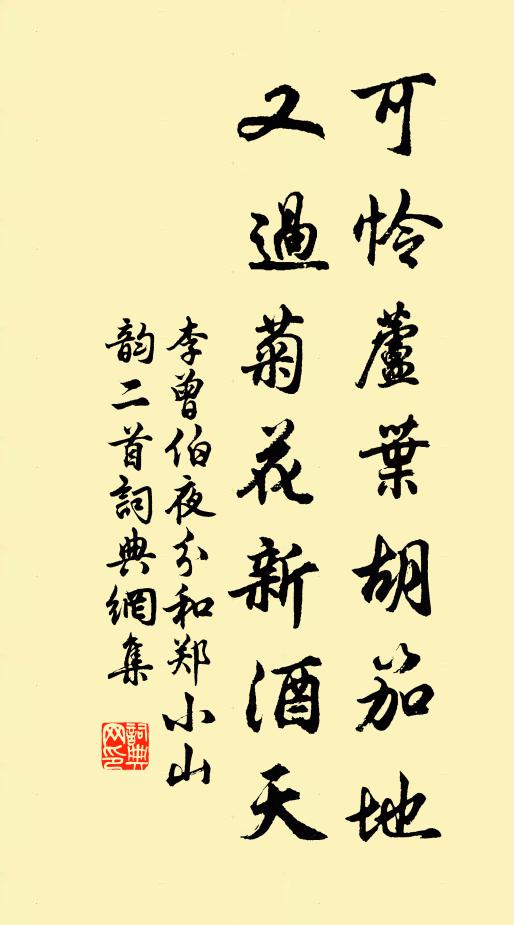 可怜蘆葉胡笳地
又過菊花新酒天
李曾伯夜分和郑小山
韵二首詞典網集
詞典網印